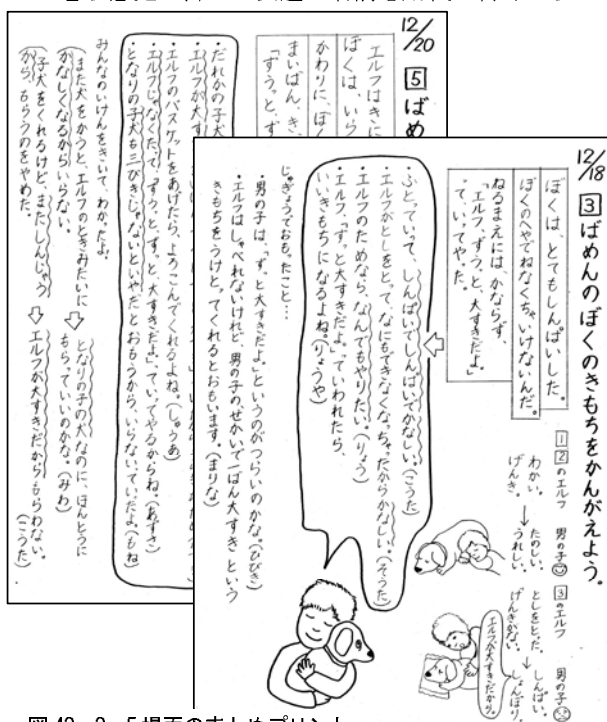 12/20
5 ばめ
エルフはきに
ぼくは、いら
かわりに、ぼ
まいばん、き
「ずうっと、ず
だれかの子犬
エルフが大す
エルフのバスケットをあげたら、よろこんでくれるよね。(しゅうあ)
エルフじゃなくたって「ずうっと、ずっと、大すきだよ」っていってやるからね。(あずさ)
となりの子犬も三びきじゃないといやだとおもうから、いらないっていたよ。(もね)
みんなのいけんをきいて、わかったよ。
(また犬をかうと、エルフのときみたいに
かなしくなるからいらない。
となりの子の犬なのに、ほんとうに
もらっていいのかな。(みわ)
(子犬をくれるけど、またしんじゃう
から、もらうのをやめた。
エルフが大すきだからもらわない。
(こうた)
12/18
3 ばめんのぼくのきもちをかんがえよう。
ぼくは、とてもしんぱいした。
ぼくのへやでねなくちゃいけないんだ。
ねるまえには、かならず、
「エルフ、ずうっと、大すきだよ。」
って、いってやった。
1 2 のエルフ
わかい。
げんき。
男の子
たのしい。
うれしい。
3 のエルフ
としをとった。
げんきがない。
男の子
しんぱい。
しょんぼり。
エルフが大すきだから。
・ふとっていって、しんぱいでしんぱいでかなしい。(こうた)
・エルフがとしをとって、なにもできなくなっちゃったからかなしい。(そうた)
・エルフのためなら、なんでもやりたい。(りょう)
・エルフ、「ずっと大すきだよ。」っていわれたら、
いいきもちになるよね。(りょうや)
じゅぎょうでおもったこと…
・男の子は、「ずっと大すきだよ」というのがつらいのかな。(ひびき)
・エルフはしゃべれないけれど男の子のせかいで一ばん大すきという
きもちをうけとってくれるとおもいます。(まりな)